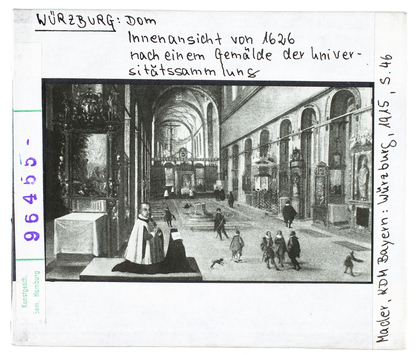 WÜRZBURG: Dom
Innenansicht von 1626
nach einem Gemälde der Univer-
sitätssammlung
96455-
Kunstgesch.
Sem. Hamburg
Mader, KDM Bayern: Würzburg, 1915, S. 46